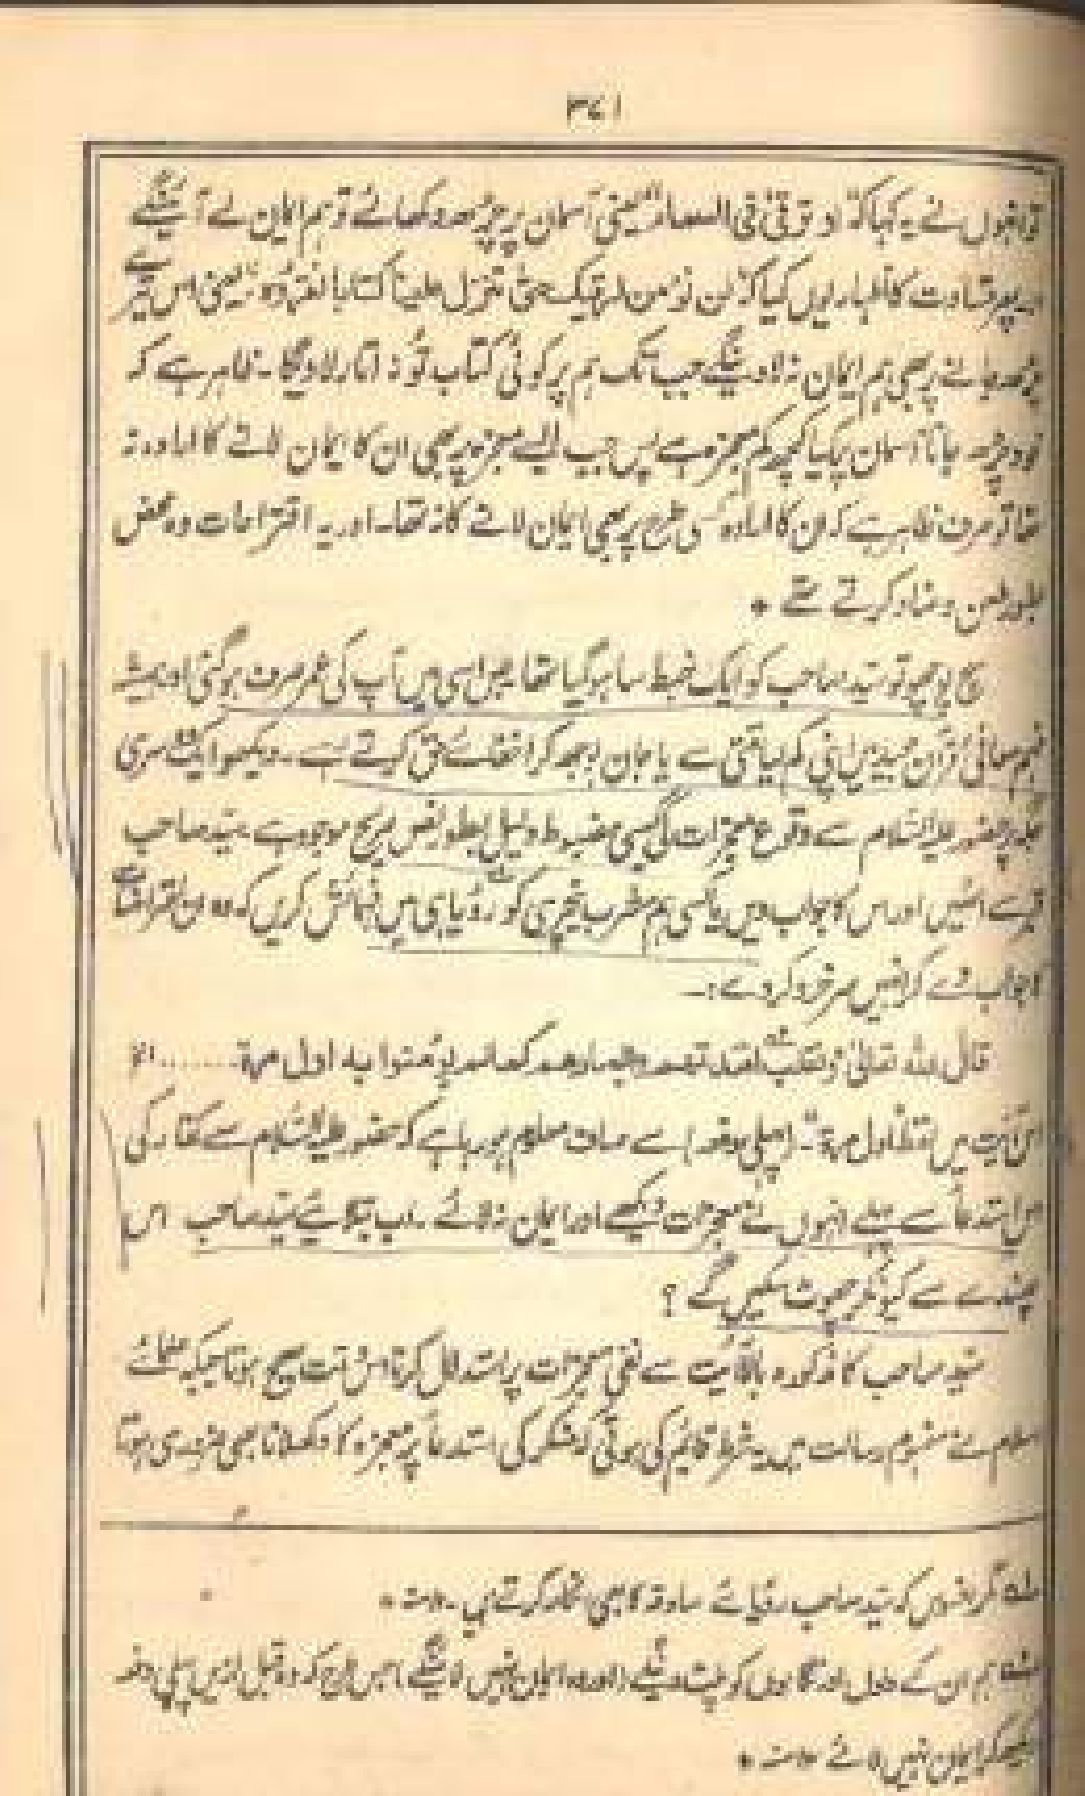 ۳۷۱
تو انہوں نے یہ کہا کہ "او ترقیٰ فی السماء" یعنی آسمان پر چڑھ کر دکھائے تو ہم ایمان لے آئینگے
اور پھر قساوت کا اظہار یوں کیا کہ "لن نؤمن لرقیک حتی تنزل علینا کتابا نقرؤہ" یعنی اس تیرے
چڑھ جانے پر بھی ہم ایمان نہ لاوینگے جب تک ہم پر کوئی کتاب تو نہ اتار لاویگا۔ ظاہر ہے کہ
خود چڑھ جانا آسمان پر کیا کچھ کم معجزہ ہے پس جب ایسے معجزہ پر بھی ان کا ایمان لانے کا ارادہ نہ
تھا تو صرف ظاہر ہے کہ ان کا ارادہ کسی طرح پر بھی ایمان لانے کا نہ تھا۔ اور یہ اقتراحات وہ محض
بطور طعن و عناد کرتے تھے *
سچ پوچھو تو سید صاحب کو ایک خبط سا ہو گیا تھا بس اسی میں آپ کی عمر صرف ہو گئی اور ہمیشہ
فہم معانی قرآن مجید میں اپنی کم لیاقتی سے یا جان بوجھ کر اخفائے حق کرتے رہے۔ دیکھو ایک دوسری
جگہ پر حضور علیہ السلام سے وقوع معجزات کی کیسی مضبوط دلیل بطور نص صریح موجود ہے سید صاحب
قبر سے اٹھیں اور اس کا جواب دیں یا کسی ہم مشرب نیچری کو رؤیا ہی میں فہمائش کریں کہ وہ
کا جواب دے کر انہیں سرخرو کر دے:۔
قال اللہ تعالیٰ ونقلب افئدتھم وابصارھم کما لم یؤمنوا بہ اول مرۃ........ الخ
اس آیت میں لفظ "اول مرۃ" (پہلی دفعہ) سے صاف معلوم ہو رہا ہے کہ حضور علیہ السلام سے کفار کی
اس استدعا سے پہلے انہوں نے معجزات دیکھے اور ایمان نہ لائے۔ اب بتلائیے سید صاحب اس
پھندے سے کیونکر چھوٹ سکیں گے؟
سید صاحب کا مذکورہ بالا آیت سے نفی معجزات پر استدلال کرنا اس وقت صحیح ہوتا جبکہ علمائے
اسلام نے مفہوم رسالت میں یہ شرط قائم کی ہوتی کہ منکر کی استدعا پر معجزہ کا دکھلانا بھی ضروری ہوتا
مگر افسوس کہ سید صاحب رؤیائے صادقہ کا بھی انکار کرتے ہیں۔ منہ *
ہم ان کے دلوں اور نگاہوں کو پلٹ دینگے (اور وہ ایمان نہیں لائینگے) جس طرح کہ وہ قبل ازیں پہلی دفعہ
دیکھ کر ایمان نہیں لائے منہ *